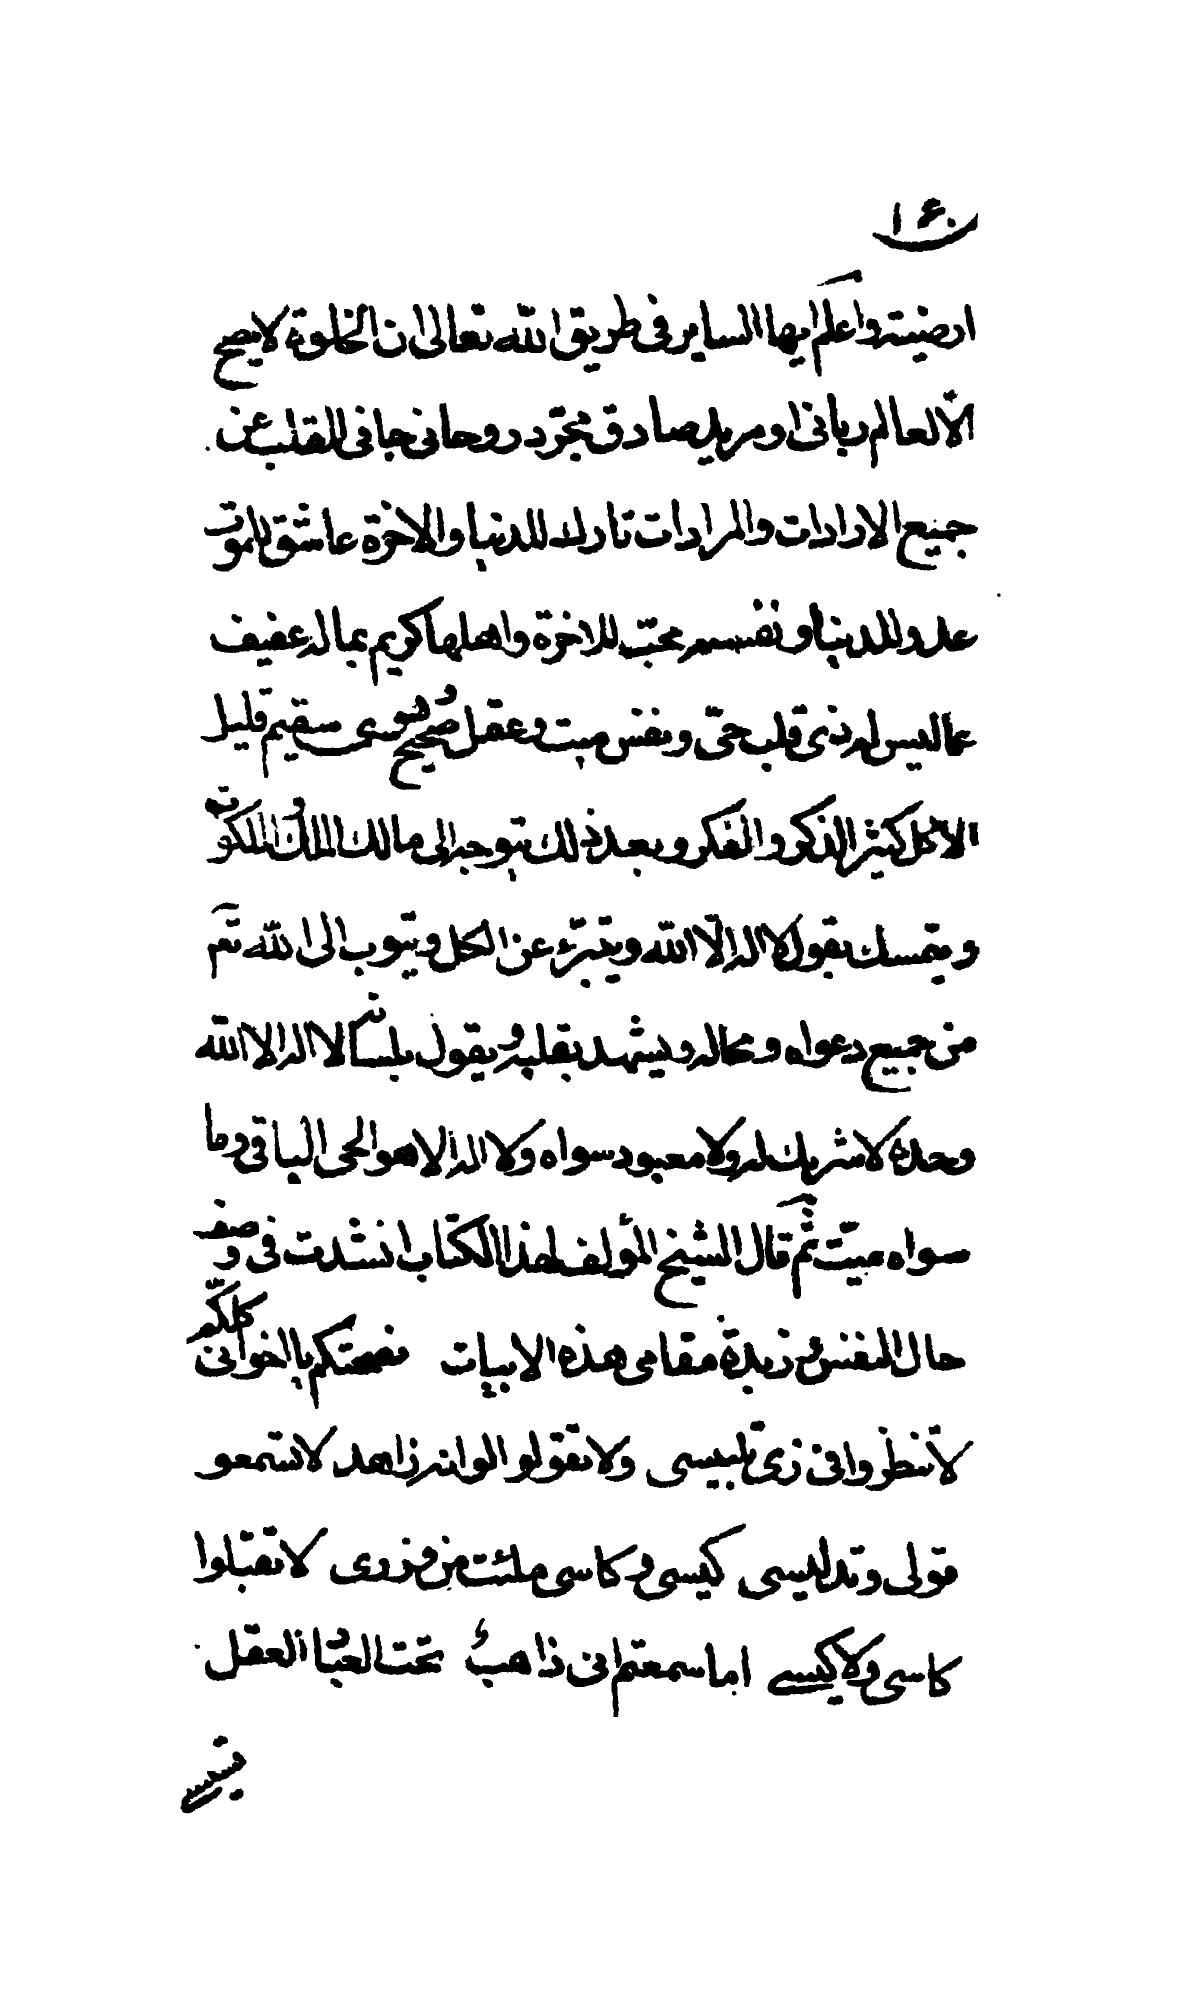 ١٤٠
ارضيته واعلم ايها الساير فى طريق الله تعالى ان الخلوة لا يصح
الّا لعالم ربانى او مريد صادق مجرّد روحانى جافى القلب عن
جميع الارادات والمرادات تارك للدنيا والاخرة عاشق للموت
عدو للدنيا ونفسه محبّ للاخرة واهلها كريم بماله عفيف
عما ليس له ذى قلب حىّ ونفس ميت وعقل صحيح وهوى سقيم قليل
الاكل كثير الذكر والفكر وبعد ذلك يتوجه الى مالك الملك والملكوت
ويتمسك بقول لا اله الّا الله ويتبرّء عن الكل ويتوب الى الله تعم
من جميع دعواه ومحاله ويشهد بقلبه ويقول بلسانه لا اله الا الله
وحده لا شريك له ولا معبود سواه ولا اله الا هو الحى الباقى وما
سواه ميّت ثم قال الشيخ المؤلف لهذا الكتاب انشدت فى وصف
حال النفس وزبدة مقامى هذه الابيات نصحتكم يا اخوانى كلكم
لا تنظروا فى زىّ تلبيسى ولا تقولوا انه زاهد لا تسمعو
قولى وتدليسى كيسى وكاسى ملئت من وزرى لا تقبلوا
كاسى ولا كيسى اما سمعتم انى ذاهب تحت العبا العقل